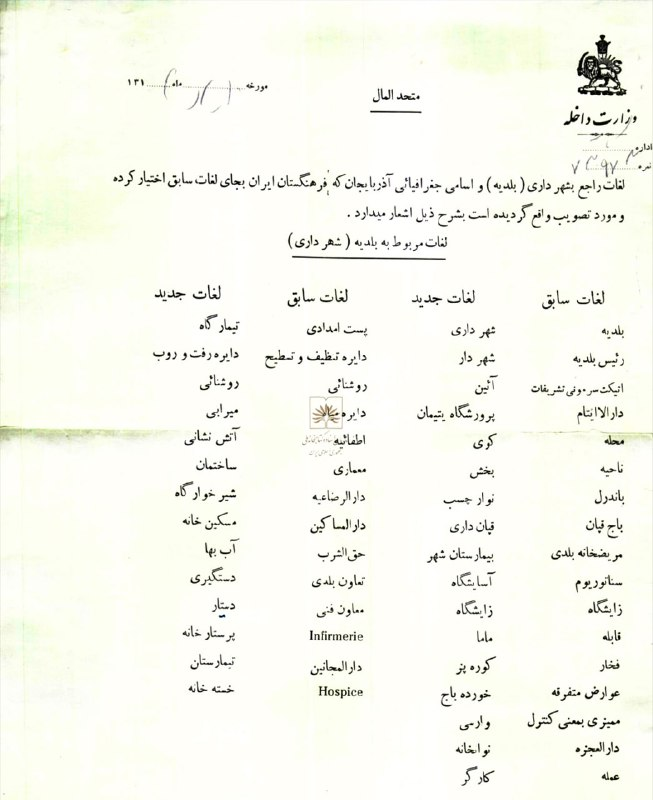 وزارت داخله
اداره
نمره ۷۳۹۷
متحد المال
مورخه ماه ۱۳۱
لغات راجع بشهر داری ( بلدیه ) و اسامی جغرافیائی آذربایجان که فرهنگستان ایران بجای لغات سابق اختیار کرده
و مورد تصویب واقع گردیده است بشرح ذیل اشعار میدارد .
لغات مربوط به بلدیه ( شهر داری )
لغات سابق لغات جدید لغات سابق لغات جدید
بلدیه شهر داری پست امدادی تیمار گاه
رئیس بلدیه شهر دار دایره تنظیف و تسطیح دایره رفت و روب
اتیکت سرمونی تشریفات آئین روشنائی روشنائی
دارالایتام پرورشگاه یتیمان دایره میاه میرابی
محله کوی اطفائیه آتش نشانی
ناحیه بخش معماری ساختمان
باندرل نوار چسب دارالرضاعیه شیر خوار گاه
باج قپان قپان داری دارالمساکین مسکین خانه
مریضخانه بلدی بیمارستان شهر حق‌الشرب آب بها
سناتوریوم آسایشگاه تعاون بلدی دستگیری
زایشگاه زایشگاه معاون فنی دستار
قابله ماما Infirmerie پرستار خانه
فخار کوره پز دارالمجانین تیمارستان
عوارض متفرقه خورده باج Hospice خسته خانه
ممیزی بمعنی کنترل وارسی
دارالعجزه نواخانه
عمله کارگر